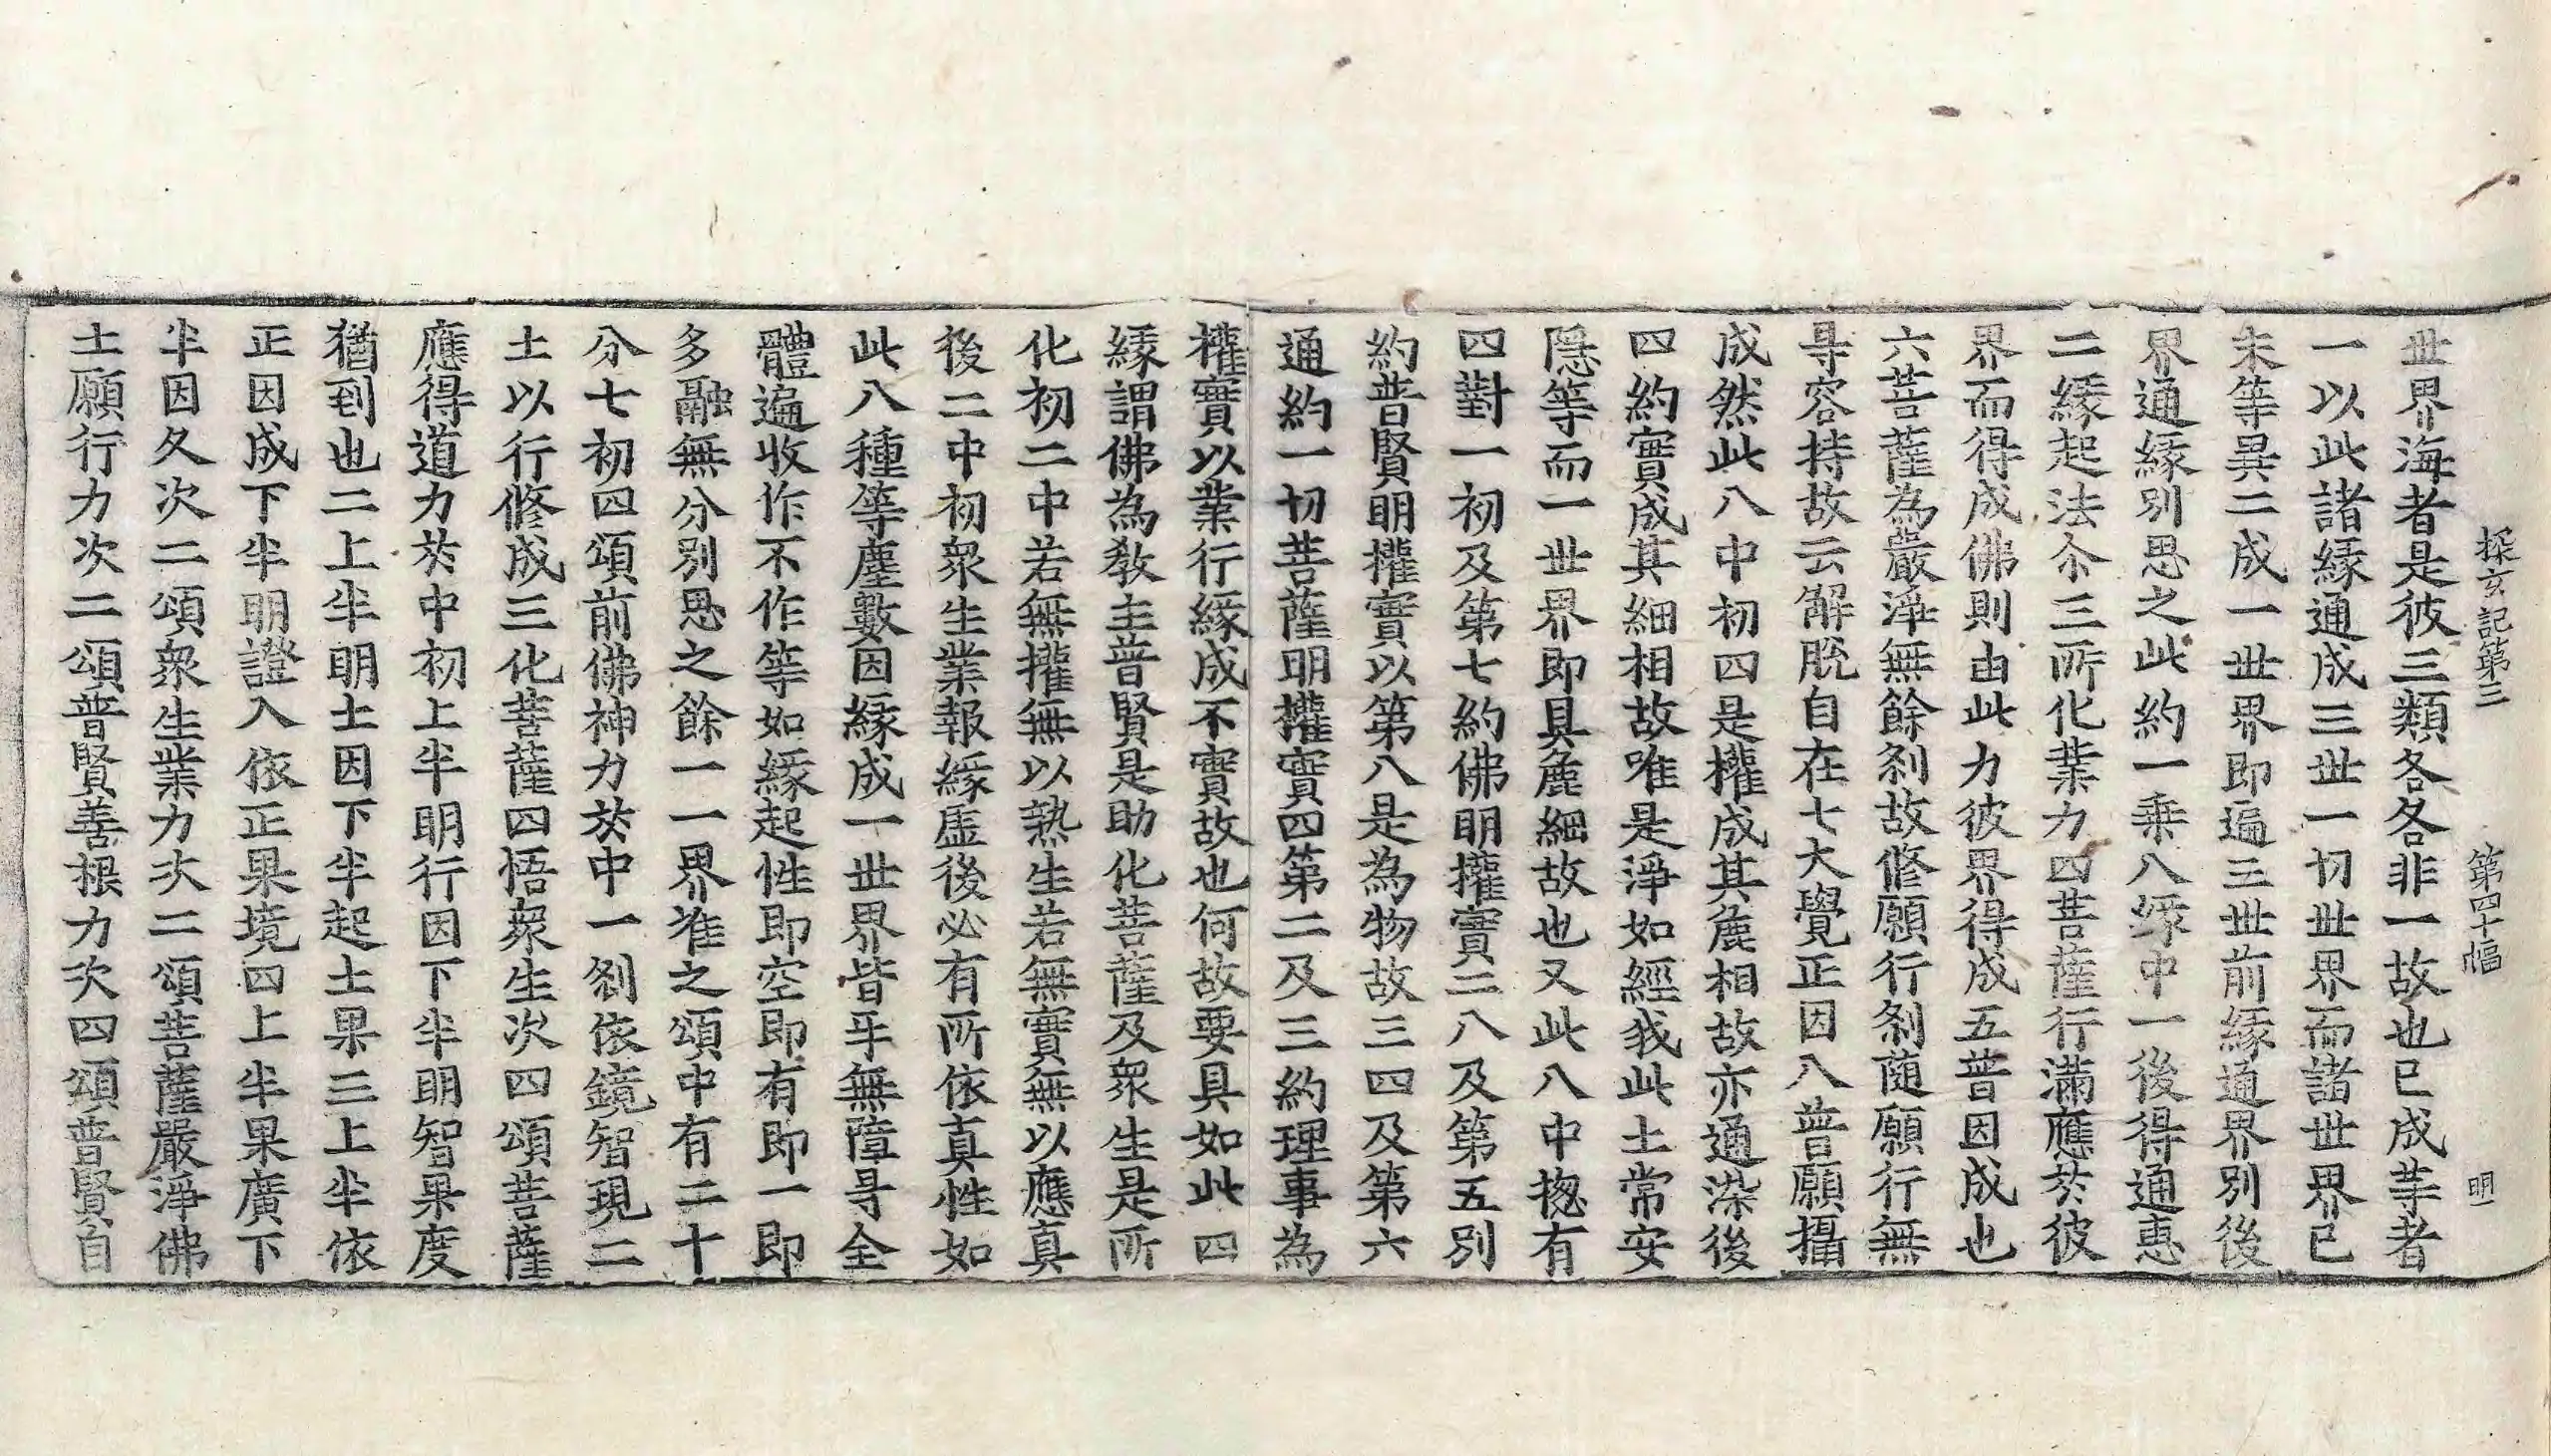 探玄記第三 第四十幅 明
世界海者是彼三類各各非一故也已成䓁者
一以此諸縁通成三世一切世界而諸世界已
未等異二成一世界即遍三世前縁通界別後
界通縁別思之此約一乗八縁中一後得通惠
二縁起法尒三所化業力四菩薩行滿應扵彼
界而得成佛則由此力彼界得成五普因成也
六菩薩為嚴淨無餘刹故修願行刹随願行無
㝵容持故云解脱自在七大覺正因八普願攝
成然此八中初四是權成其麁相故亦通染後
四約實成其細相故唯是淨如經我此土常安
隱等而一世界即具麁細故也又此八中揔有
四對一初及第七約佛明權實二八及第五別
約普賢明權實以第八是為物故三四及第六
通約一切菩薩明權實四第二及三約理事為
權實以業行縁成不實故也何故要具如此四
縁謂佛為教主普賢是助化菩薩及衆生是所
化初二中若無權無以熟生若無實無以應真
後二中初衆生業報縁虛後必有所依真性如
此八種等塵數因縁成一世界皆㸦無障㝵全
體遍收作不作等如縁起性即空即有即一即
多融無分別思之餘一一界准之頌中有二十
分七初四頌前佛神力扵中一刹依鏡智現二
土以行修成三化菩薩四悟衆生次四頌菩薩
應得道力扵中初上半明行因下半明智果度
猶到也二上半明土因下半起土果三上半依
正因成下半明證入依正果境四上半果廣下
半因久次二頌衆生業力次二頌菩薩嚴淨佛
土願行力次二頌普賢善根力次四頌普賢自